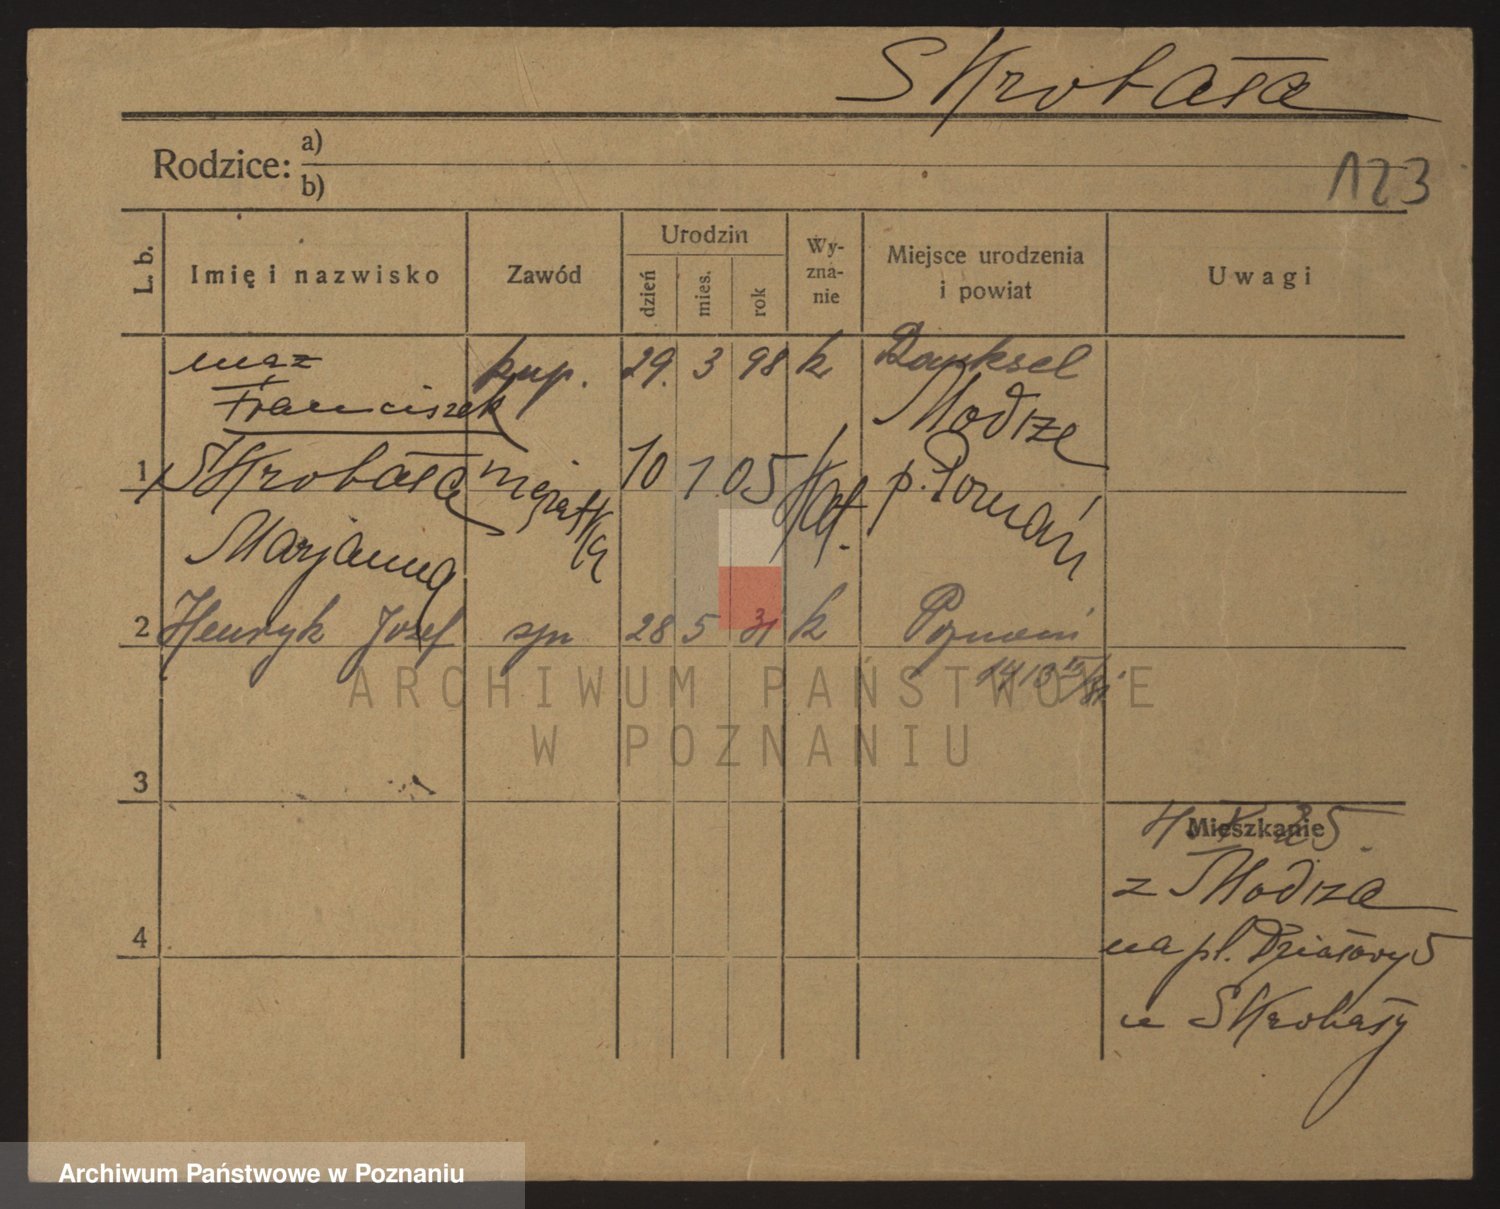 Skrobała
Rodzice: a)
b)
123
L. b.
Imię i nazwisko
Zawód
Urodzin
dzień
mies.
rok
Wy-
zna-
nie
Miejsce urodzenia
i powiat
Uwagi
mąż
Franciszek
kup. 29. 3 98 k
1 Skrobała mężatka 10 1 05 kat. Modrze
p. Poznań
Marjanna
2 Henryk Józef syn 28 5 31 k Poznań
3
4
Mieszkanie
z Modrza
na pl. Działowy 5
u Skrobały
ARCHIWUM PAŃSTWOWE
W POZNANIU
Archiwum Państwowe w Poznaniu